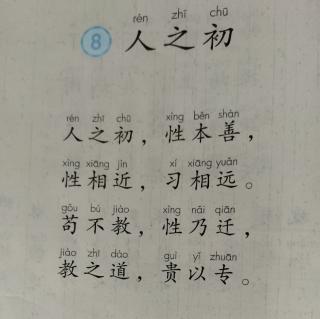 rén zhī chū
8 人之初
rén zhī chū xìng běn shàn
人之初，性本善，
xìng xiāng jìn xí xiāng yuǎn
性相近，习相远。
gǒu bú jiào xìng nǎi qiān
苟不教，性乃迁，
jiào zhī dào guì yǐ zhuān
教之道，贵以专。